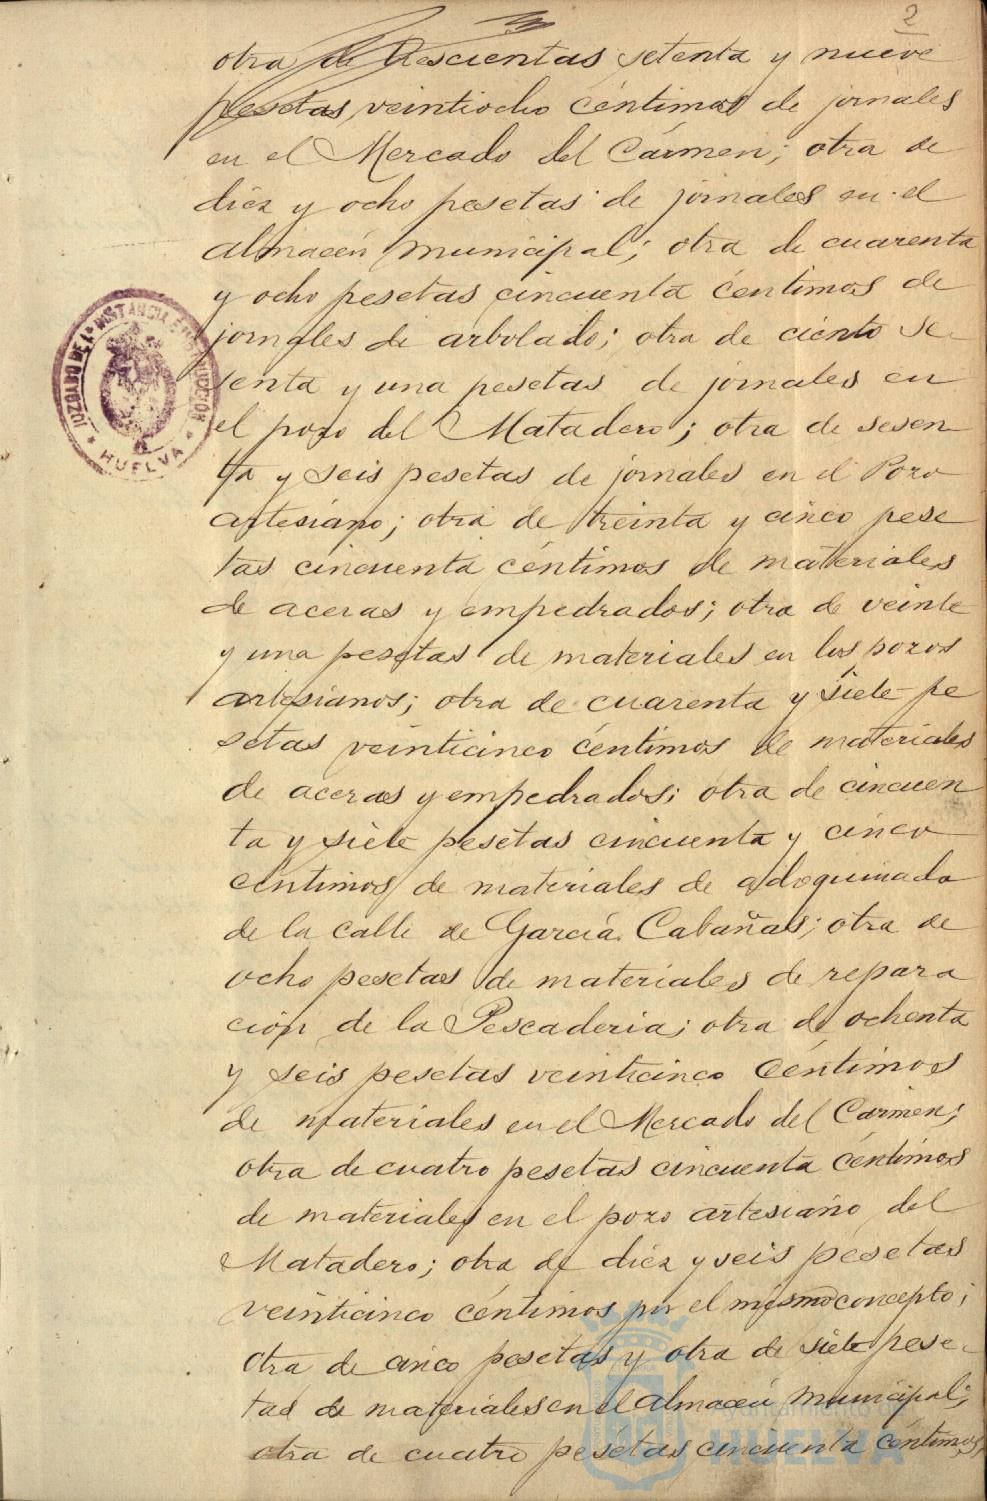 2
otra de trescientas setenta y nueve
pesetas veintiocho céntimos de jornales
en el Mercado del Cármen; otra de
diez y ocho pesetas de jornales en el
almacén municipal; otra de cuarenta
y ocho pesetas cincuenta céntimos de
jornales de arbolado; otra de ciento se-
senta y una pesetas de jornales en
el pozo del Matadero; otra de sesen
ta y seis pesetas de jornales en el Pozo
artesiano; otra de treinta y cinco pese
tas cincuenta céntimos de materiales
de aceras y empedrados; otra de veinte
y una pesetas de materiales en los pozos
artesianos; otra de cuarenta y siete pe
setas veinticinco céntimos de materiales
de aceras y empedrados; otra de cincuen
ta y siete pesetas cincuenta y cinco
céntimos de materiales de adoquinado
de la calle de García Cabañas; otra de
ocho pesetas de materiales de repara
ción de la Pescaderia; otra de ochenta
y seis pesetas veinticinco céntimos
de materiales en el Mercado del Carmen;
otra de cuatro pesetas cincuenta céntimos
de materiales en el pozo artesiano del
Matadero; otra de diez y seis pesetas
veinticinco céntimos por el mismo concepto;
otra de cinco pesetas y otra de siete pese-
tas de materiales en el almacén municipal;
otra de cuatro pesetas cincuenta céntimos,
JUZGADO DE 1ª INSTANCIA E INSTRUCCION
* HUELVA *
Ayuntamiento de
HUELVA